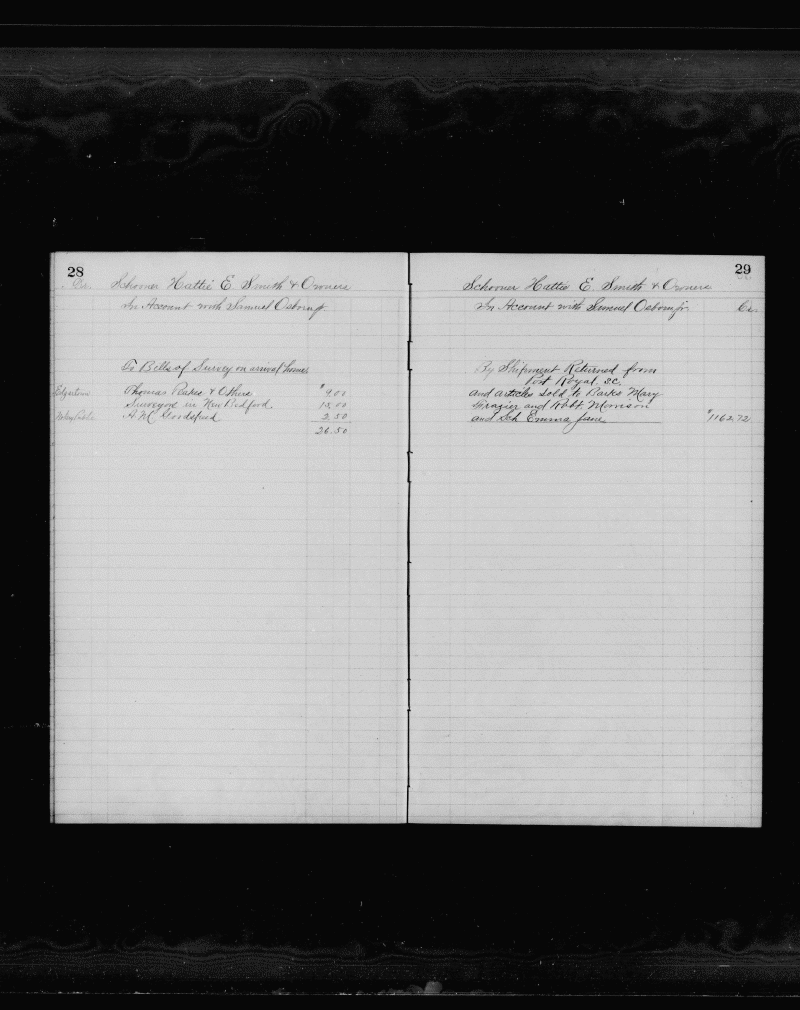 28
Dr. Schooner Hattie E. Smith & Owners
In Account with Samuel Osborn Jr.
To Bills of Survey on arrival home
Edgartown Thomas Pease & Others $9.00
Surveyors in New Bedford 15.00
A. M. Goodspeed 2.50
26.50
29
Schooner Hattie E. Smith & Owners
In Account with Samuel Osborn Jr. Cr.
By Shipment Returned from
Port Royal S.C.
and articles sold to Barks Mary
Frazier and Robt. Morrison
and Sch Emma Jane $1162.72